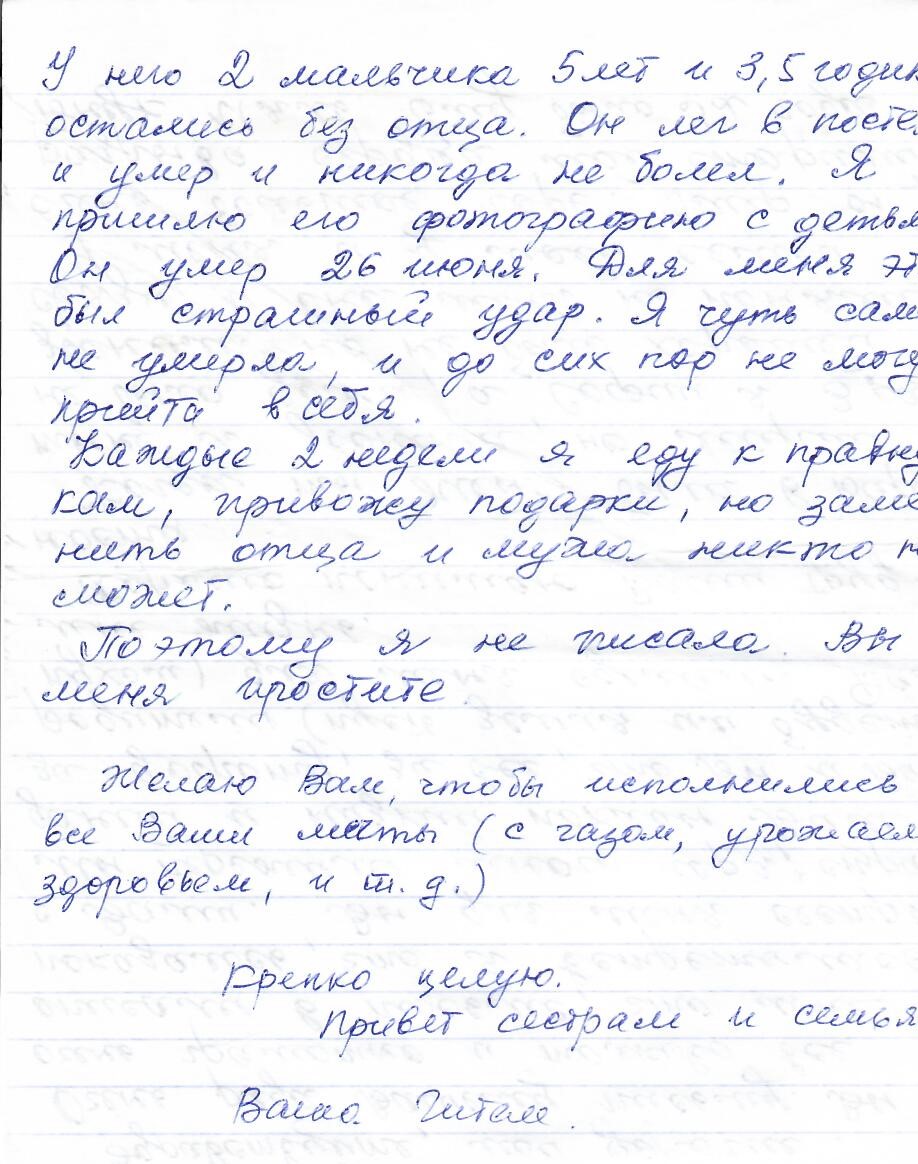 У него 2 мальчика 5 лет и 3,5 годик
остались без отца. Он лег в посте
и умер и никогда не болел. Я
пришлю его фотографию с детья
Он умер 26 июня. Для меня эт
был страшный удар. Я чуть сам
не умерла, и до сих пор не могу
прийти в себя.
Каждые 2 недели я еду к правну
кам, привожу подарки, но заме
нить отца и мужа никто н
может.
Поэтому я не писала. Вы
меня простите.
Желаю Вам, чтобы исполнились
все Ваши мечты (с газом, урожаем
здоровьем, и т. д.)
Крепко целую.
Привет сестрам и семья
Ваша Гителе.